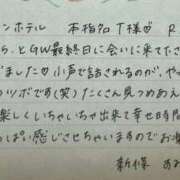 ンホテル 本指名 T様♡ R
ら、とGW最終日に会いに来て下さ
ました♡小声で話されるのが、や
ツボです(笑)たくさん見つめあえ
楽しくいちゃいちゃ出来て幸せ時間
っぱい感じさせちゃいますのでお
新保 あみ